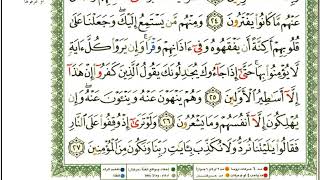 عَنْهُم مَّا كَانُوا۟ يَفْتَرُونَ ٢٤ وَمِنْهُم مَّن يَسْتَمِعُ إِلَيْكَ ۖ وَجَعَلْنَا عَلَىٰ
قُلُوبِهِمْ أَكِنَّةً أَن يَفْقَهُوهُ وَفِىٓ ءَاذَانِهِمْ وَقْرًا ۚ وَإِن يَرَوْا۟ كُلَّ ءَايَةٍ
لَّا يُؤْمِنُوا۟ بِهَا ۚ حَتَّىٰٓ إِذَا جَآءُوكَ يُجَـٰدِلُونَكَ يَقُولُ ٱلَّذِينَ كَفَرُوٓا۟ إِنْ هَـٰذَآ
إِلَّآ أَسَـٰطِيرُ ٱلْأَوَّلِينَ ٢٥ وَهُمْ يَنْهَوْنَ عَنْهُ وَيَنْـَٔوْنَ عَنْهُ ۖ وَإِن
يُهْلِكُونَ إِلَّآ أَنفُسَهُمْ وَمَا يَشْعُرُونَ ٢٦ وَلَوْ تَرَىٰٓ إِذْ وُقِفُوا۟ عَلَى ٱلنَّارِ
فَقَالُوا۟ يَـٰلَيْتَنَا نُرَدُّ وَلَا نُكَذِّبَ بِـَٔايَـٰتِ رَبِّنَا وَنَكُونَ مِنَ ٱلْمُؤْمِنِينَ ٢٧